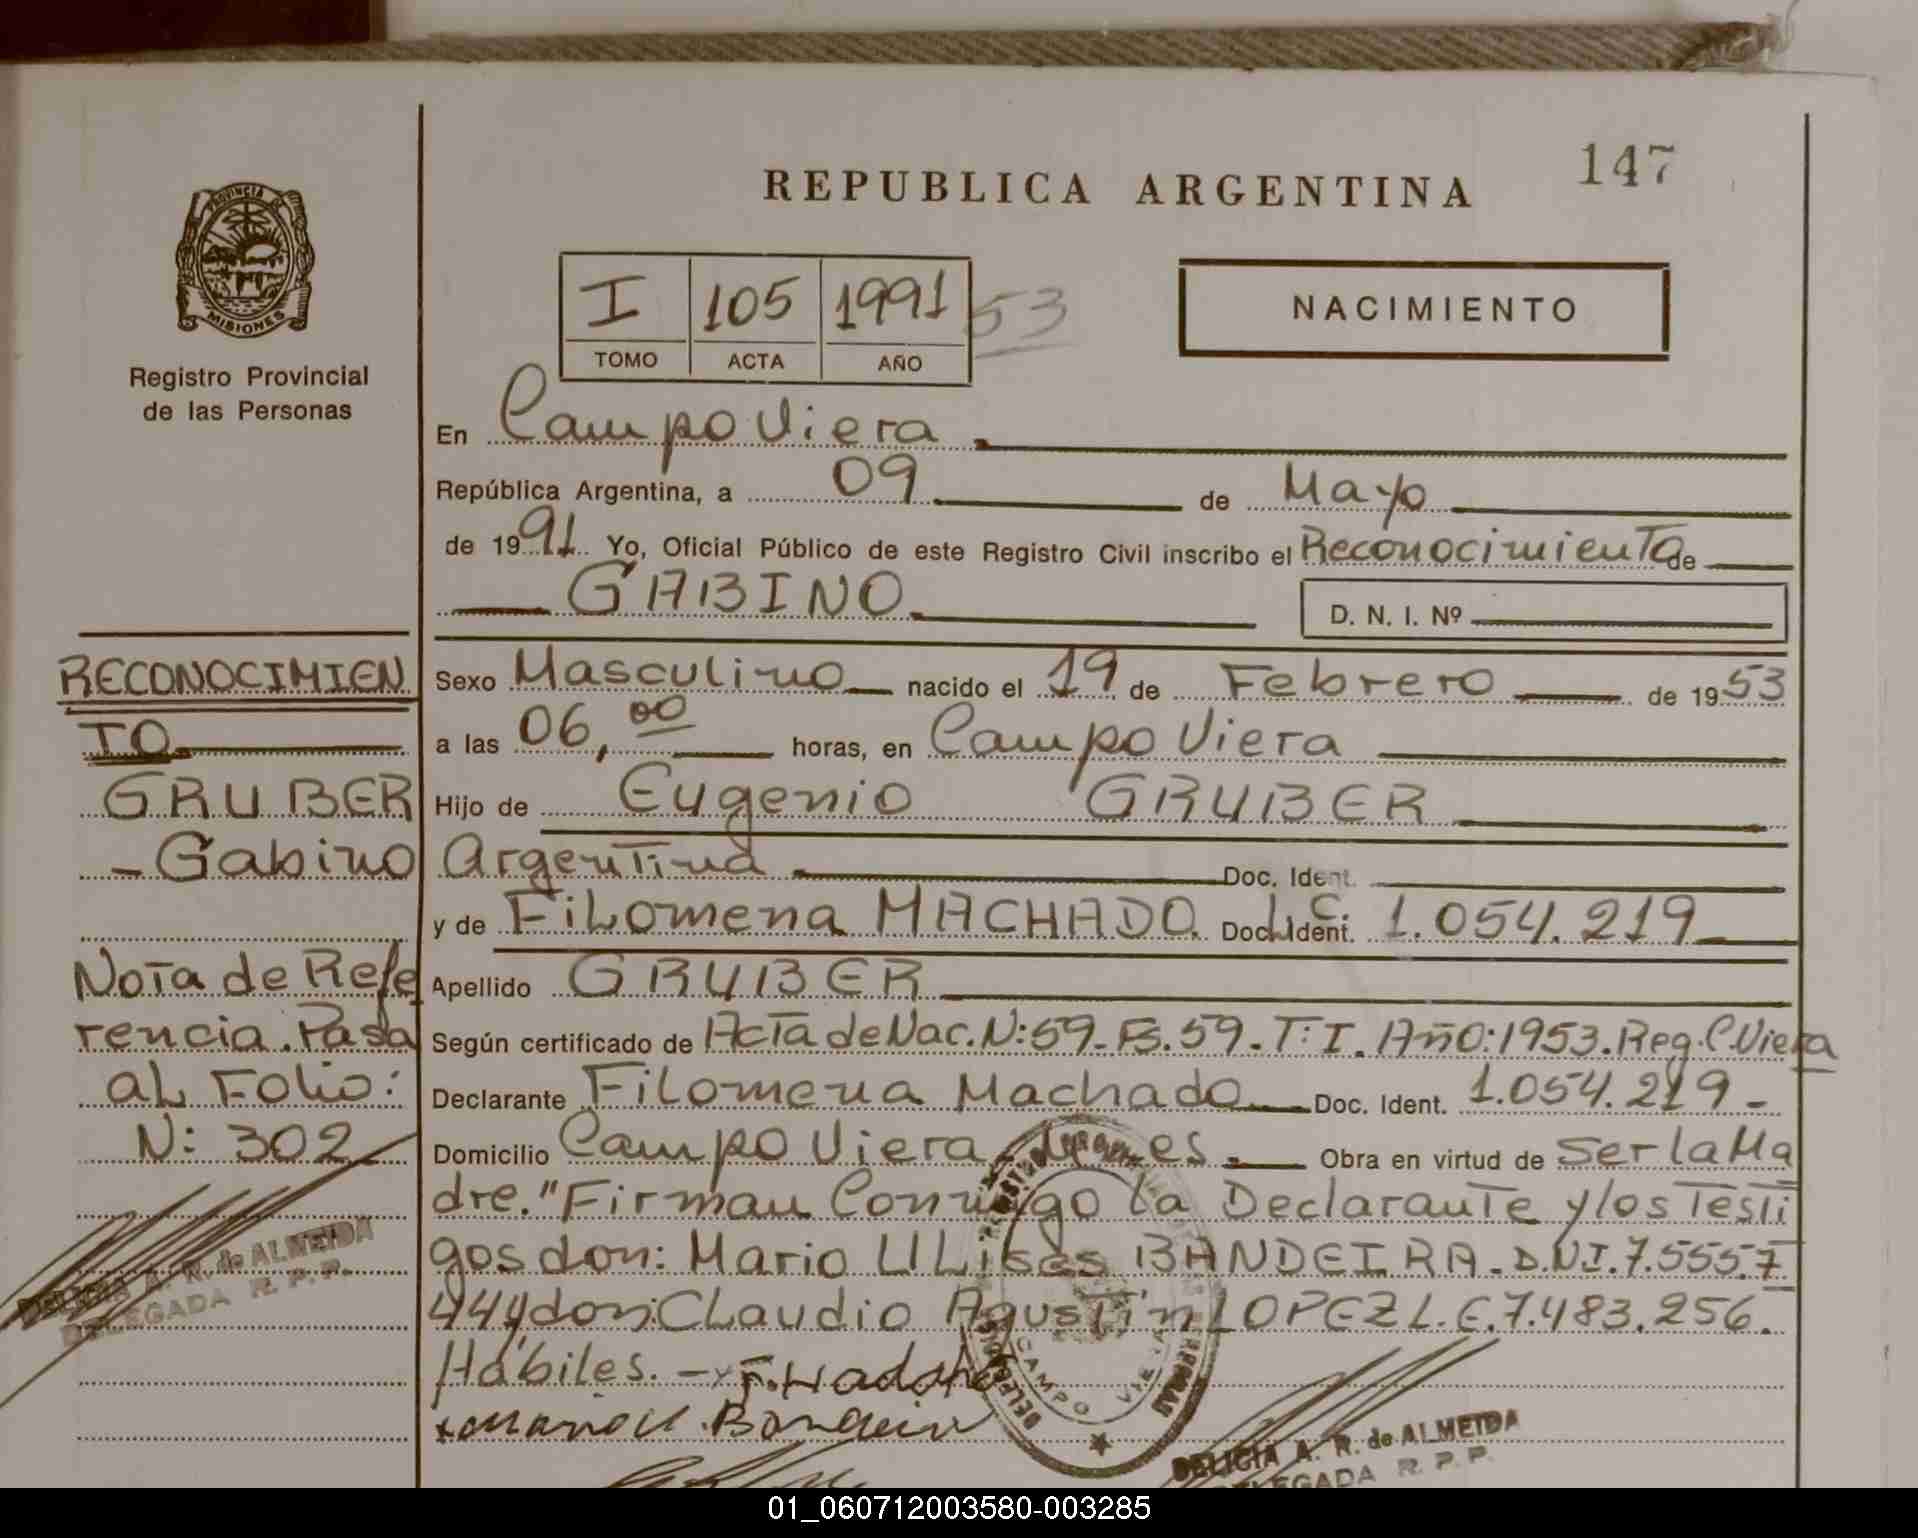 147
REPUBLICA ARGENTINA
PROVINCIA
MISIONES
Registro Provincial
de las Personas
I 105 1991 53
TOMO ACTA AÑO
NACIMIENTO
En Campo Viera
República Argentina, a 09 de Mayo
de 1991. Yo, Oficial Público de este Registro Civil inscribo el Reconocimiento de
GABINO
D. N. I. Nº
Sexo Masculino nacido el 19 de Febrero de 1953
a las 06,00 horas, en Campo Viera
Hijo de Eugenio GRUBER
Argentina Doc. Ident.
y de Filomena MACHADO. Doc. Ident. L.C. 1.054.219
Apellido GRUBER
Según certificado de Acta de Nac. N: 59-Fs. 59-T: I. Año: 1953. Reg. C. Viera
Declarante Filomena Machado Doc. Ident. 1.054.219-
Domicilio Campo Viera Obra en virtud de ser la Ma
dre." Firman Conmigo la Declarante y los Testi
gos don: Mario ULises BANDEIRA-D.N.I. 7.555.7
44 y don: Claudio Agustín LOPEZ L.E. 7.483.256.
Hábiles.-
RECONOCIMIEN
TO
GRUBER
-Gabino
Nota de Refe
rencia. Pasa
al Folio:
N: 302
DELICIA A. R. de ALMEIDA
DELEGADA R. P. P.
CAMPO VIERA
DELICIA A. R. de ALMEIDA
DELEGADA R. P. P.
01_060712003580-003285